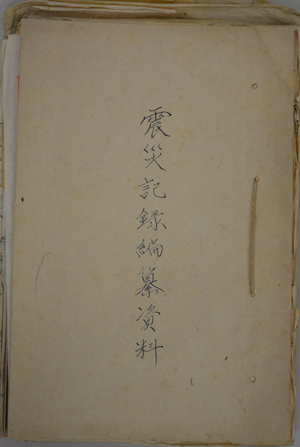 震災記録編纂資料